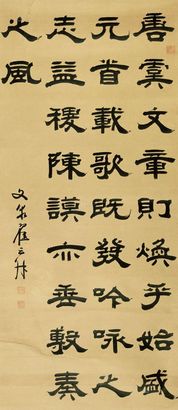 唐虞文章則煥乎始盛
元首載歌既發吟詠之
志益稷陳謨亦垂敷奏
之風